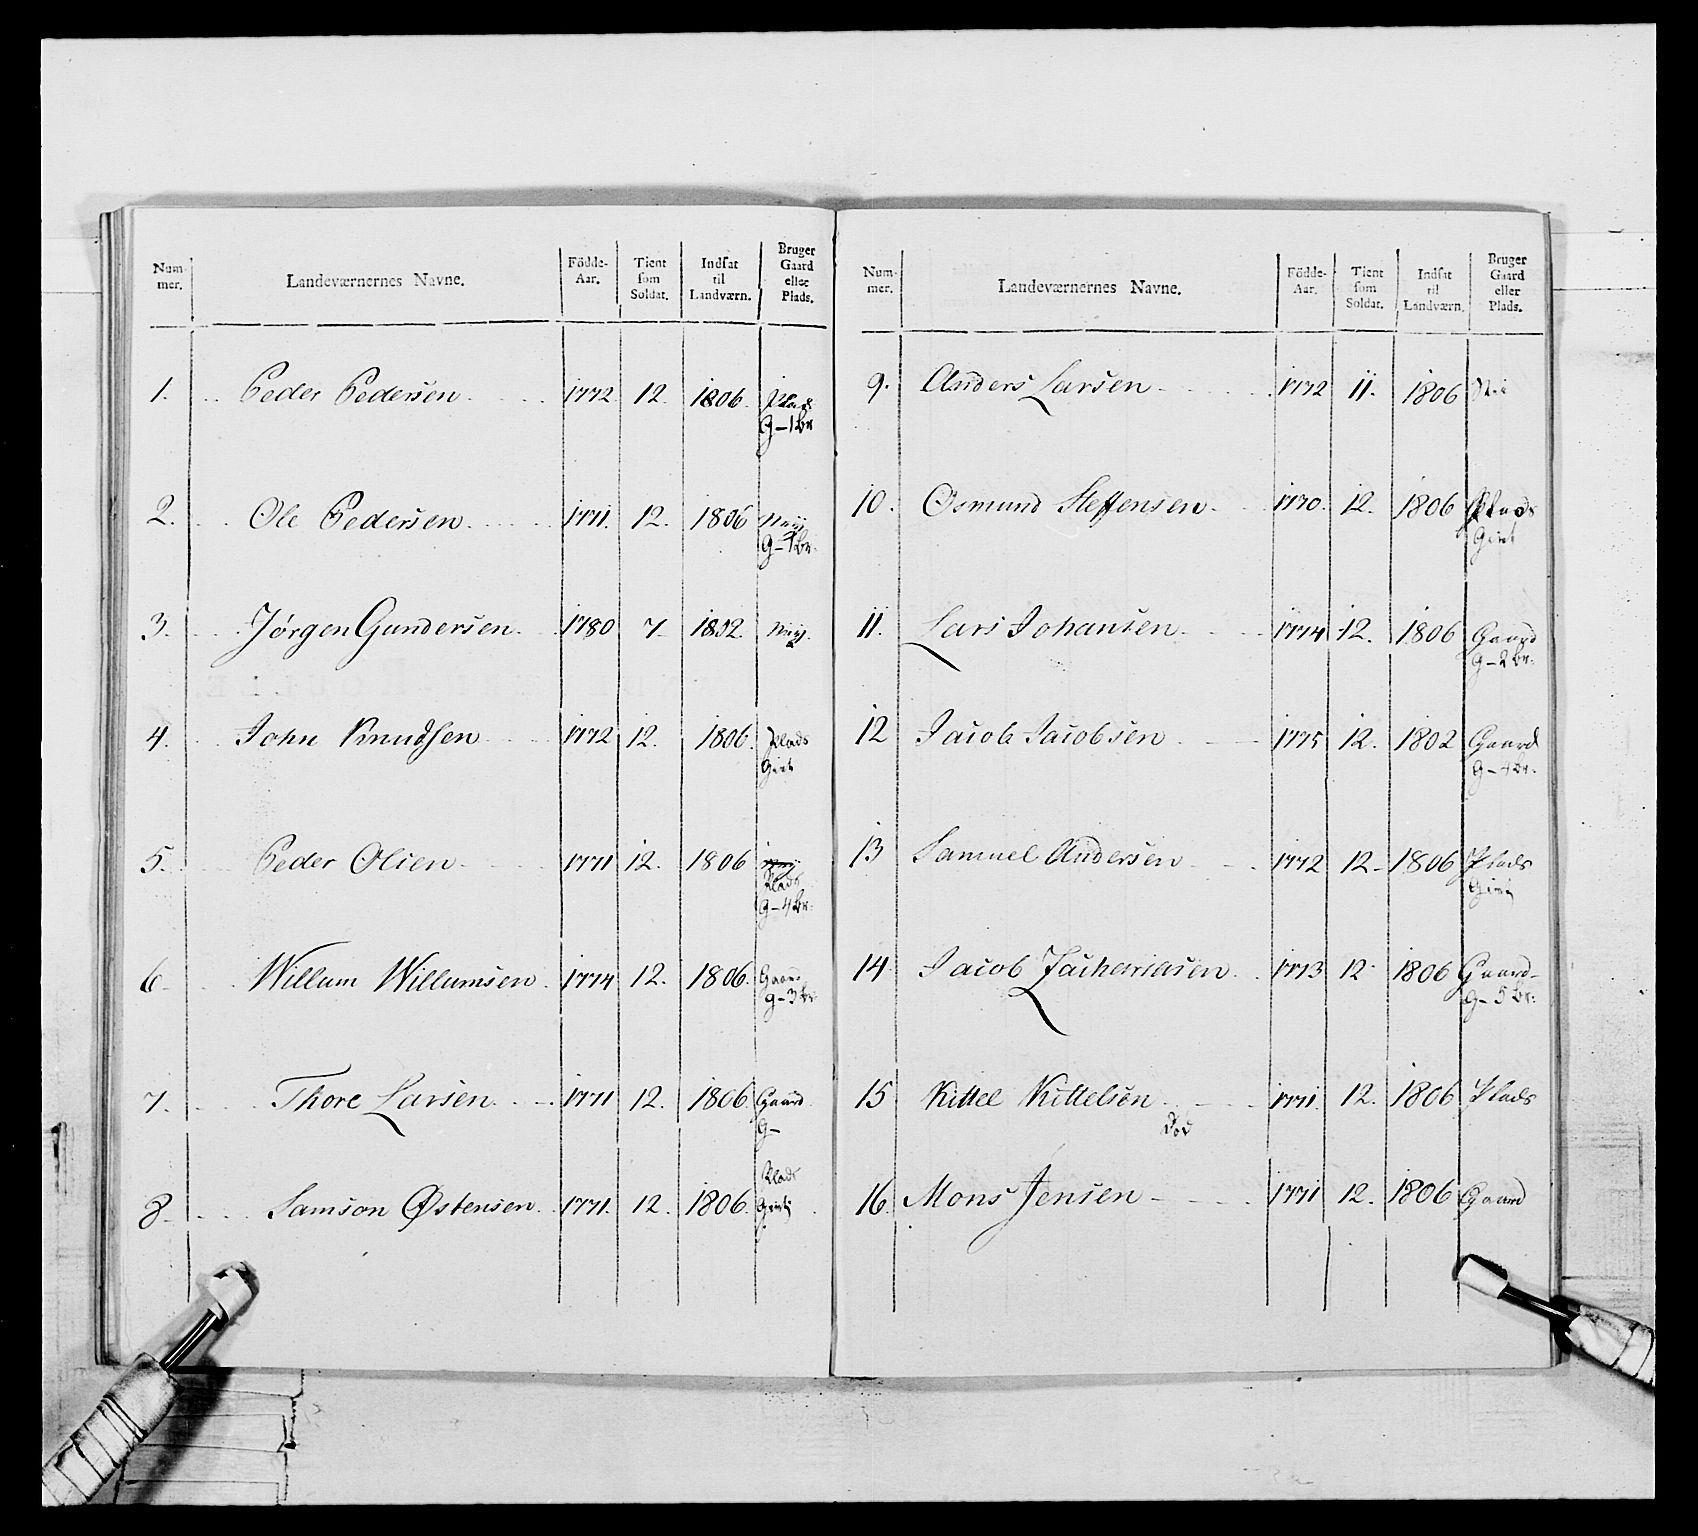 Num- mer. Landeværnernes Navne. Födde- Aar. Tient som Soldat. Indsat til Landværn. Bruger Gaard eller Plads.
1. Peder Pedersen 1772 12 1806 Plads
G-1 br
2. Ole Pedersen 1771. 12. 1806 Neiij
G-1 br.
3. Jørgen Gundersen 1780 7 1802 Neiij.
4. John Knudsen 1772 12. 1806. Plads
Givt
5. Peder Olsen 1771 12. 1806
Plads
G-4 br.
6 Willum Willumsen 1774 12. 1806. Gaard
G-3 br
7. Thore Larsen 1771 12. 1806 Gaard
G-
Plads
8 Samson Østensen 1771. 12. 1806. Givt
Num- mer. Landeværnernes Navne. Födde- Aar. Tient som Soldat. Indsat til Landværn. Bruger Gaard eller Plads.
9. Anders Larsen 1772 11. 1806
10. Osmund Steffensen 1770. 12. 1806 Plads
Givt
11. Lars Johansen 1774 12. 1806 Gaard
G-2 br.
12 Jacob Jacobsen 1775 12. 1802 Gaard
G-4 br.
13 Samuel Andersen 1772 12 1806 Plads
Givt
14 Jacob Zachariasen 1773 12 1806 Gaard
G-5 br.
15 Kittel Kittelsen 1771. 12. 1806 Plads
Død
16. Mons Jensen 1771 12. 1806 Gaard